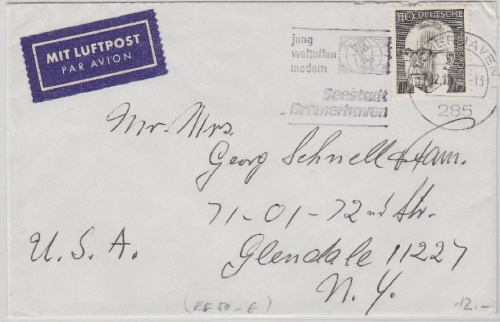 MIT LUFTPOST
PAR AVION
jung
weltoffen
modern
Seestadt
Bremerhaven
285
Mr. Mrs.
Georg Schnell + Fam.
71-01-72nd Str.
Glendale 11227
N. Y.
U. S. A.
12.-